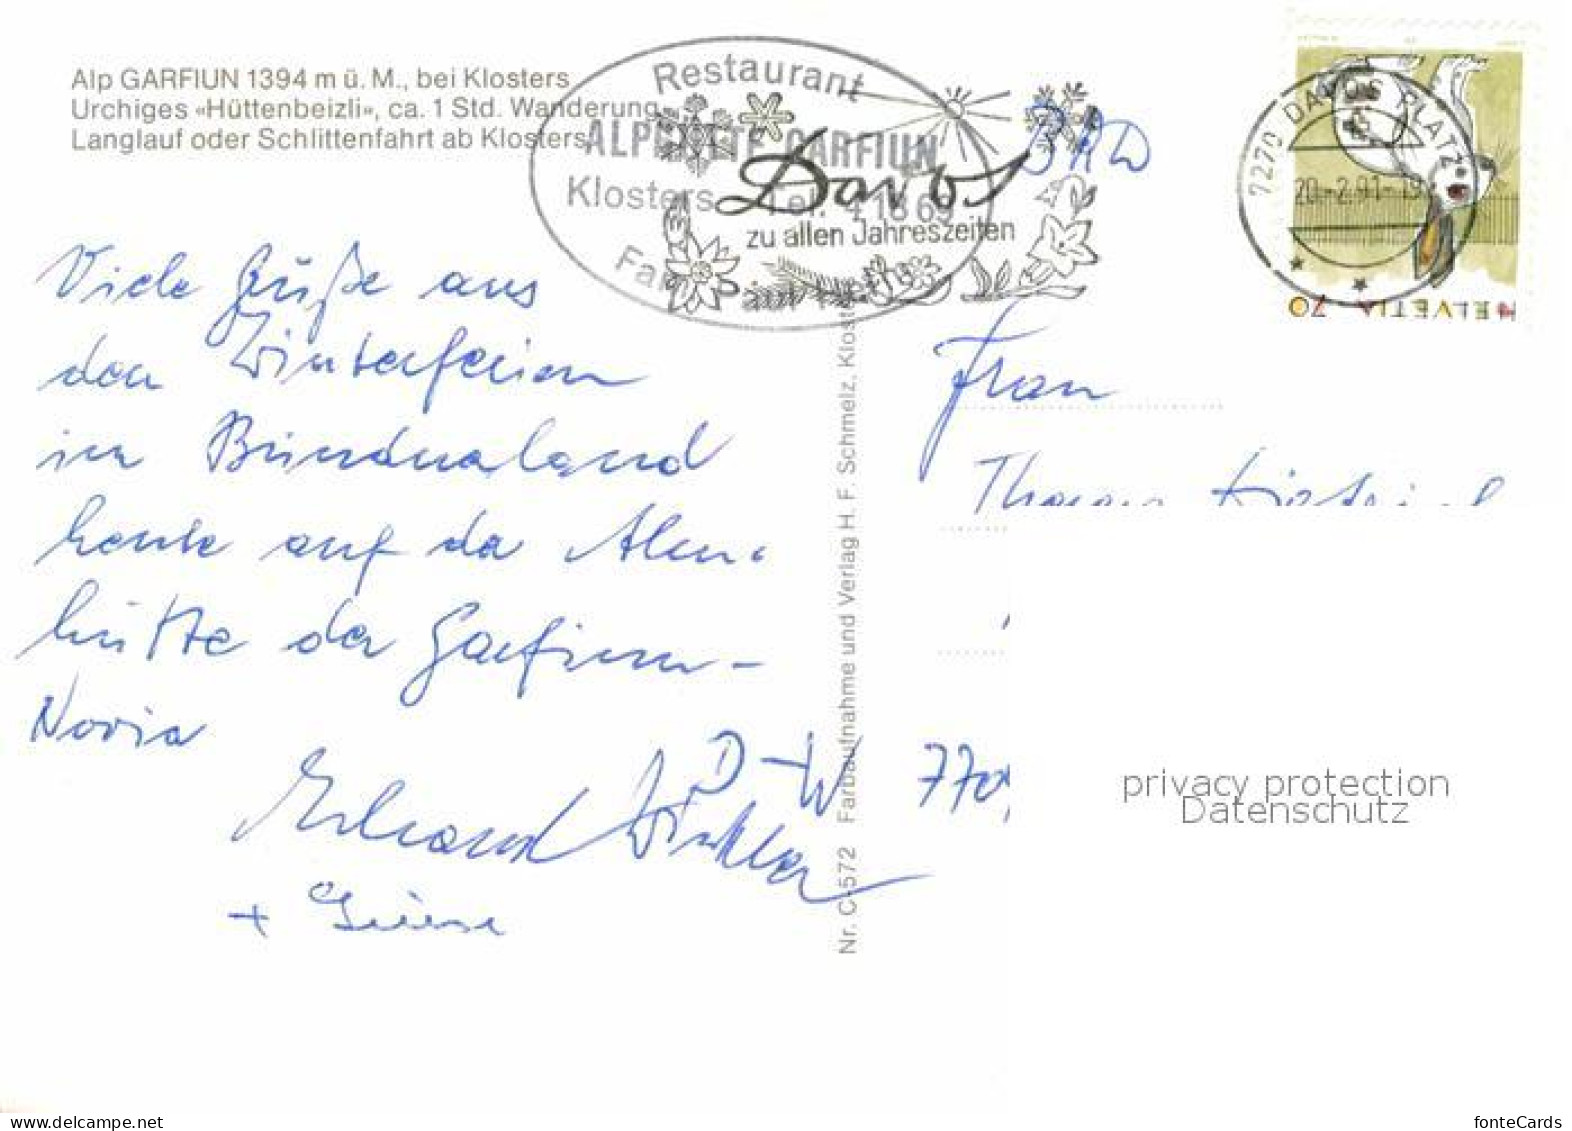 Alp GARFIUN 1394 m ü. M., bei Klosters
Urchiges «Hüttenbeizli», ca. 1 Std. Wanderung
Langlauf oder Schlittenfahrt ab Klosters
Restaurant
ALPHÜTTE GARFIUN
Klosters Tel. 4 18 69
Fam.
Davos
zu allen Jahreszeiten
BRD
7270 DAVOS PLATZ
20.-2.91-19
HELVETIA 70
Viele Grüße aus
den Winterferien
im Bündnerland
heute auf der Alm-
hütte der Garfium-
Novia
Erhard Winkler
+
Frau
D-W 770
Nr. C-572 Farbaufnahme und Verlag H. F. Schmelz, Klosters
privacy protection
Datenschutz
www.delcampe.net
fonteCards